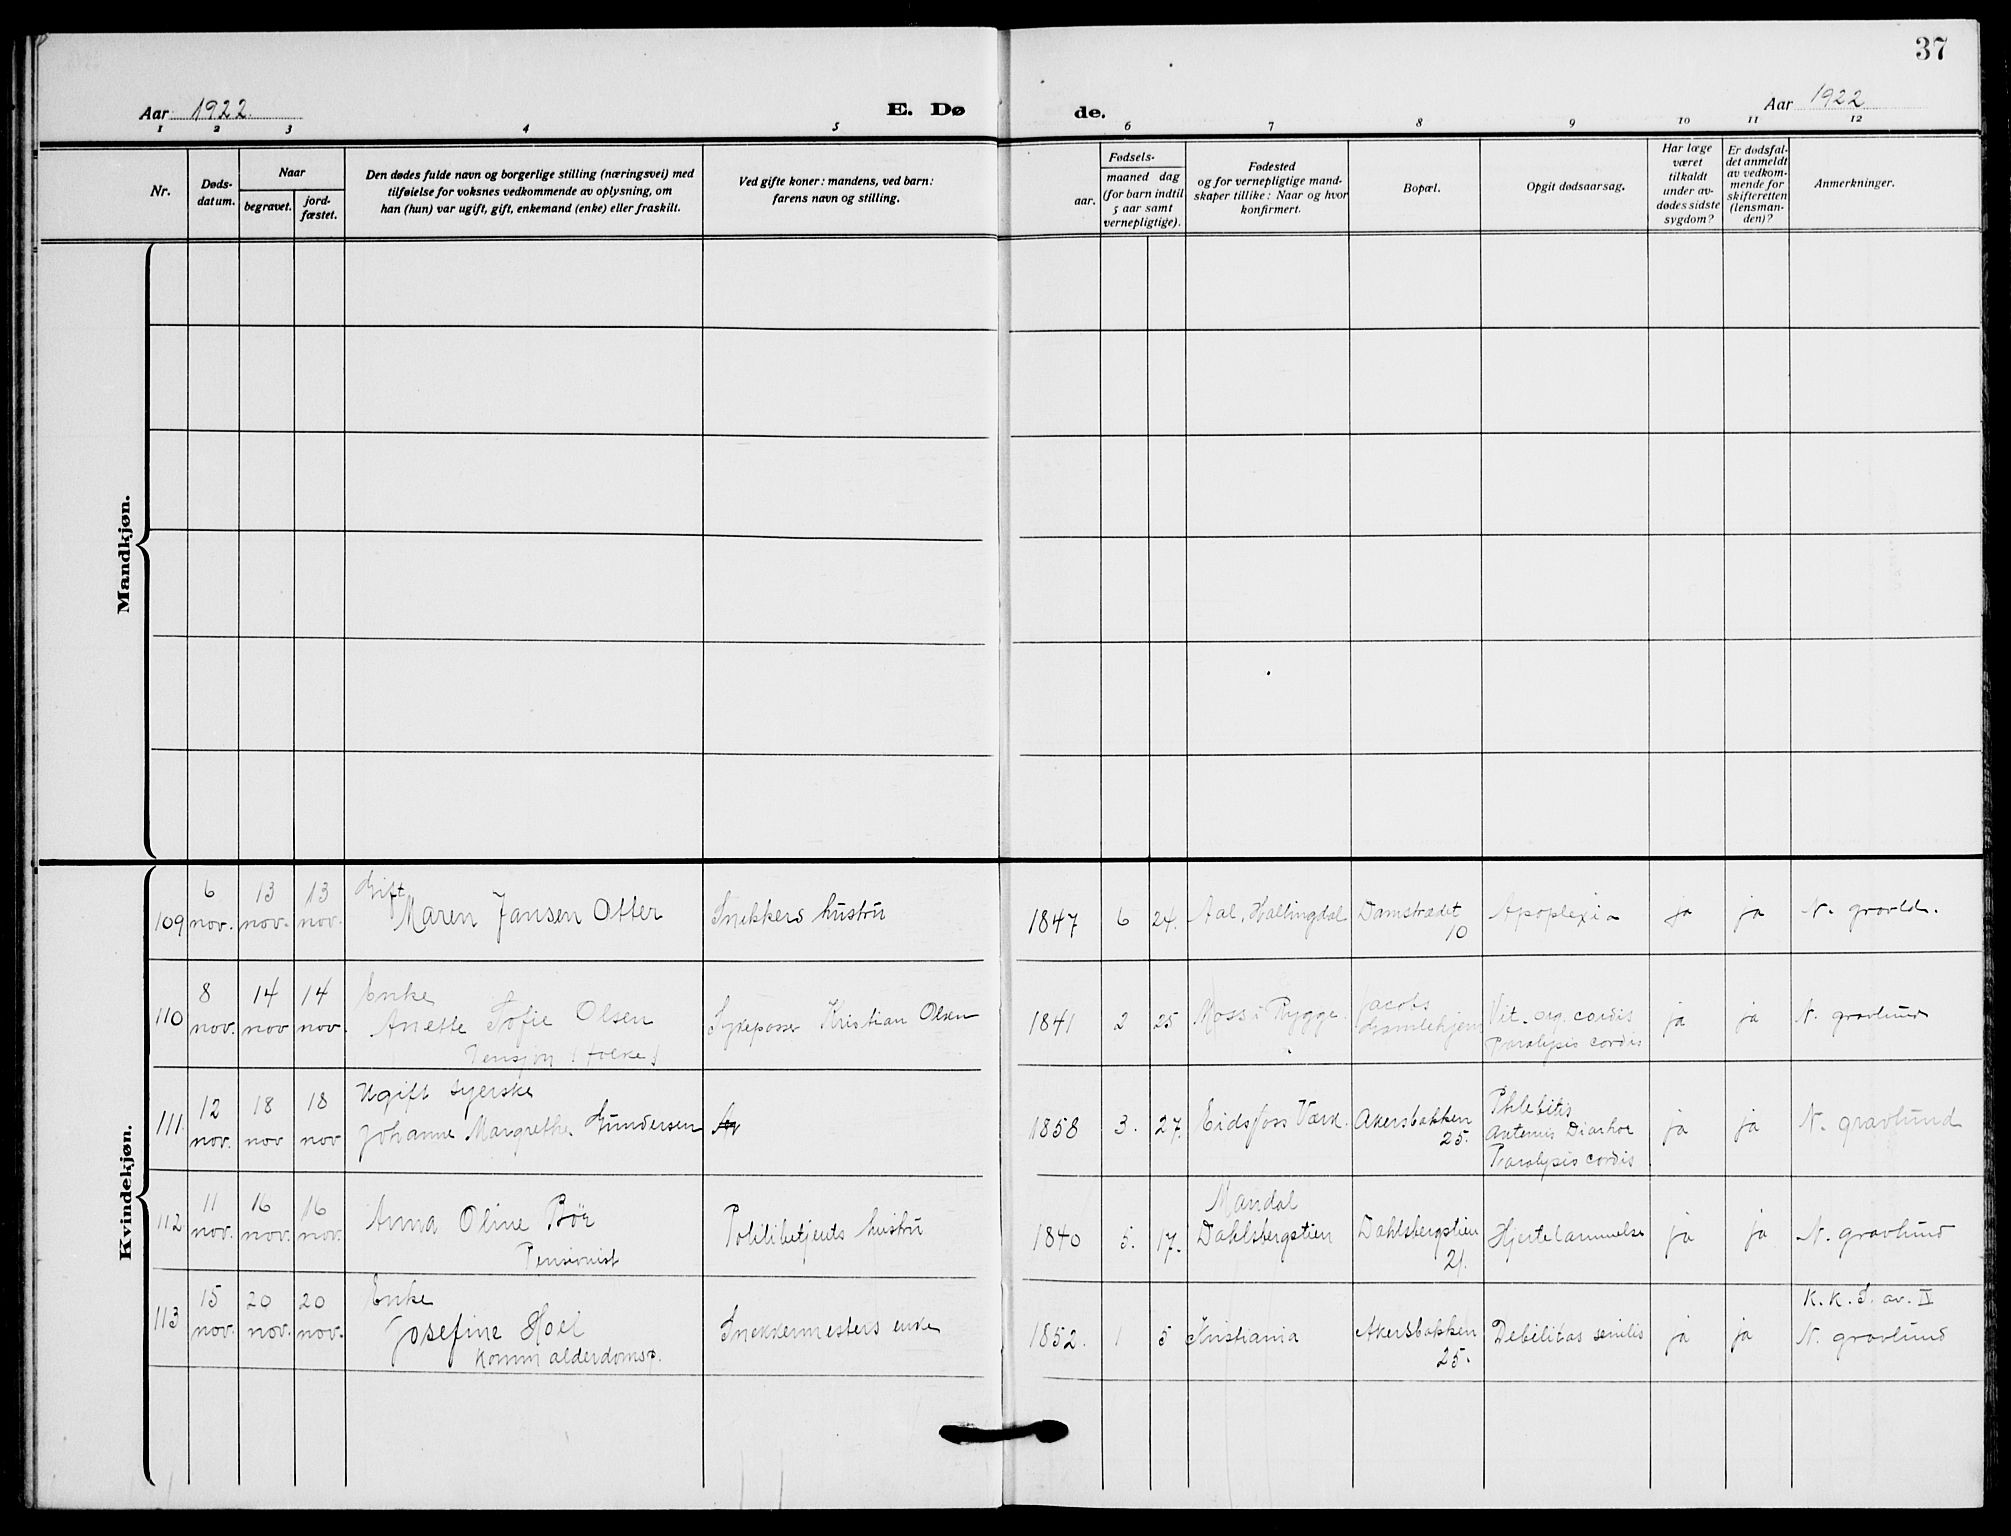 37
Aar 1922
E. Dø
de.
Aar 1922
1 2 3 4 5 6 7 8 9 10 11 12
Nr.
Døds-
datum.
Naar
begravet.
jord-
fæstet.
Den dødes fulde navn og borgerlige stilling (næringsvei) med
tilføielse for voksnes vedkommende av oplysning, om
han (hun) var ugift, gift, enkemand (enke) eller fraskilt.
Ved gifte koner: mandens, ved barn:
farens navn og stilling.
Fødsels-
aar.
maaned dag
(for barn indtil
5 aar samt
vernepligtige).
Fødested
og for vernepligtige mand-
skaper tillike: Naar og hvor
konfirmert.
Bopæl.
Opgit dødsaarsag.
Har læge
været
tilkaldt
under av-
dødes sidste
sygdom?
Er dødsfal-
det anmeldt
av vedkom-
mende for
skifteretten
(lensman-
den)?
Anmerkninger.
Mandkjøn.
Kvindekjøn.
109
6
nov.
13
nov.
13
nov.
Gift
Maren Jansen Otter
Snekkers hustru
1847
6
24.
Aal, Hallingdal
Damstrædet
10
Apoplexia
ja
ja
N. gravld.
110
8
nov.
14
nov
14
nov.
Enke
Anette Sofie Olsen
Kristian Olsen
1841
2
25
Moss i Rygge.
Jacobs
Gamlehjem
Vit. org. cordis
Paralysis cordis
ja
ja
N. gravlund
111
12
nov.
18
nov
18
nov
Ugift syerske
Johanne Margrethe Gundersen
1858
3.
27.
Eidsfoss Værk.
Akersbakken
25.
Phlebitis
Diarhoe
Paralysis cordis
ja
ja
N. gravlund
112
11
nov.
16
nov.
16
nov.
Anna Oline Böe
Pensionist
Politibetjents hustru
1840
5.
17.
Mandal
Dahlsbergstien
Dahlsbergstien
21.
Hjertelammelse
ja
ja
N. gravlund
113
15
nov.
20
nov.
20
nov.
Enke
Josefine Hoel
Komm alderdomsp.
Snekkermesters enke
1852.
1
5
Kristiania
Akersbakken
25.
Debilitas senilis
ja
ja
K. K. S. av. IV
N. gravlund